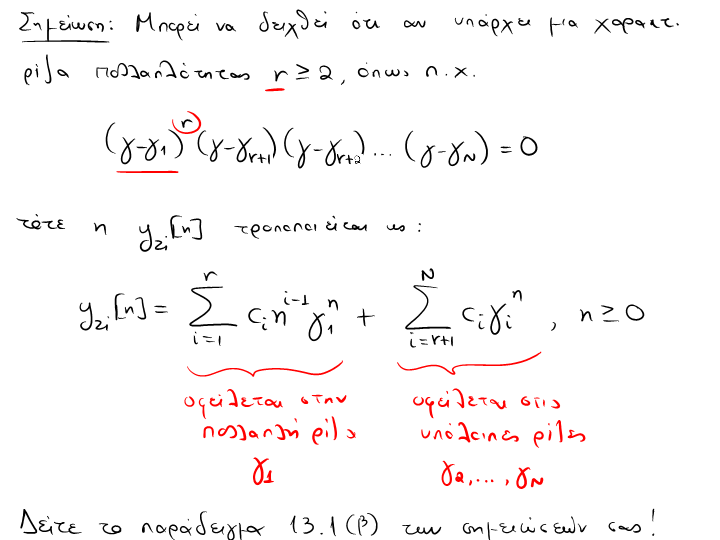 Σημείωση: Μπορεί να δειχθεί ότι αν υπάρχει μια χαρακτ.
ρίζα πολλαπλότητας r ≥ 2, όπως π.χ.
(γ-γ₁)^r (γ-γ_{r+1}) (γ-γ_{r+2}) ... (γ-γ_N) = 0
τότε η y_{zi}[n] τροποποιείται ως:
y_{zi}[n] = \sum_{i=1}^{r} c_i n^{i-1} γ_1^n + \sum_{i=r+1}^{N} c_i γ_i^n , n ≥ 0
οφείλεται στην οφείλεται στις
πολλαπλή ρίζα υπόλοιπες ρίζες
γ₁ γ₂, ..., γ_N
Δείτε το παράδειγμα 13.1 (β) των σημειώσεών σας!